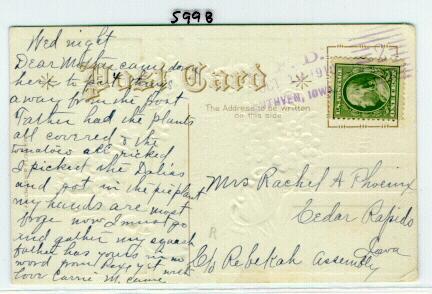 5998
Wed night
Dear Mother came down
here to put things
away from the frost
Father had the plants
all covered & the
tomatoes all picked
I picked the Dalias
and got in the pieplant
my hands are most
froze now I must go
and gather my squash
Father has yours in no
word from Roxy yet with
love Carrie M.
Post Card
The Address to be written
on this side
R. F. D.
RUTHVEN, IOWA
Mrs Rachel A Phoenix
Cedar Rapids
Iowa
C/o Rebekah Assembly
R